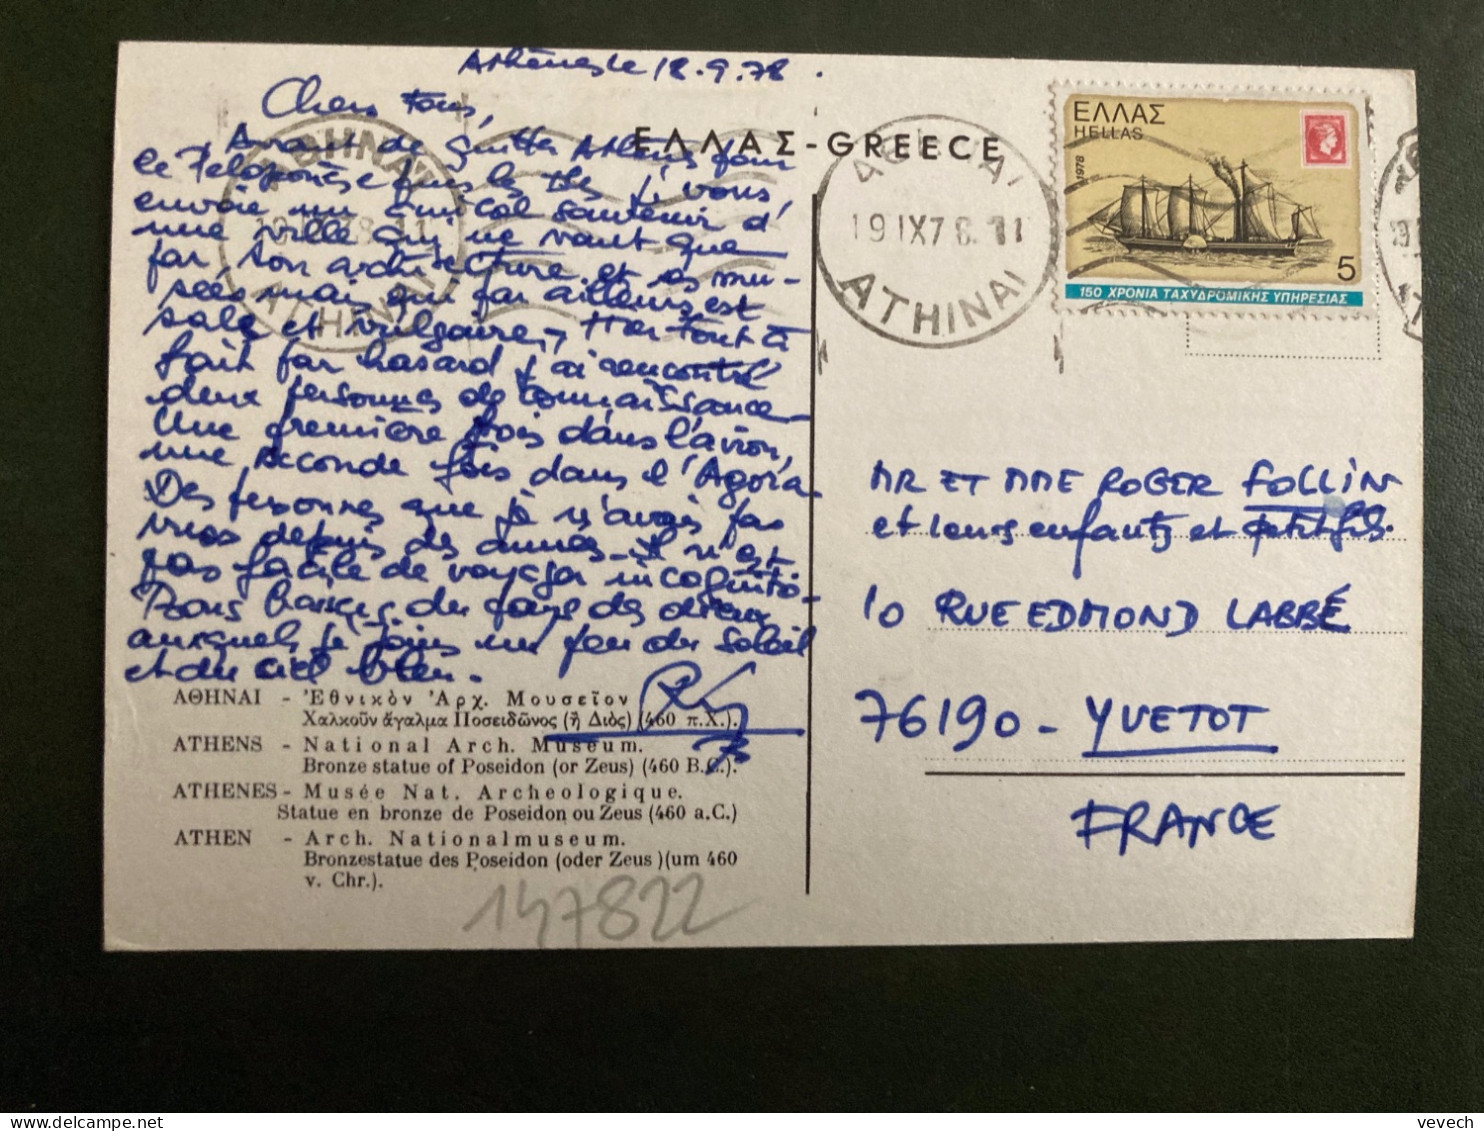 Athènes le 18.9.78.
Chers Tous,
Avant de quitter Athènes pour
le Péloponèse puis les Iles je vous
envoie un amical souvenir d'
une ville qui ne vaut que
par son architecture et ses mu-
sées, mais qui par ailleurs est
sale et vulgaire. Hier tout à
fait par hasard j'ai rencontré
deux personnes de connaissance
Une première fois dans l'avion,
une seconde fois dans l'Agora.
Des personnes que je n'avais pas
vues depuis des années. Il n'est
pas facile de voyager incognito.
Bons baisers du pays des dieux
auxquels je joins un peu du soleil
et du ciel bleu.
ΕΛΛΑΣ - GREECE
ΑΘΗΝΑΙ
19 IX 78. 11
ATHINAI
ΑΘΗΝΑΙ
19 IX 78. 11
ATHINAI
ΕΛΛΑΣ
HELLAS
1978
5
150 ΧΡΟΝΙΑ ΤΑΧΥΔΡΟΜΙΚΗΣ ΥΠΗΡΕΣΙΑΣ
MR ET MME ROGER FOLLIN
et leurs enfants et petits fils.
10 RUE EDMOND LABBÉ
76190 - YVETOT
FRANCE
ΑΘΗΝΑΙ - Ἐθνικὸν Ἀρχ. Μουσεῖον
Χαλκοῦν ἄγαλμα Ποσειδῶνος (ἢ Διὸς) (460 π.Χ.).
ATHENS - National Arch. Museum.
Bronze statue of Poseidon (or Zeus) (460 B.C.).
ATHENES - Musée Nat. Archeologique.
Statue en bronze de Poseidon ou Zeus (460 a.C.)
ATHEN - Arch. Nationalmuseum.
Bronzestatue des Poseidon (oder Zeus )(um 460
v. Chr.).
147822
vevech